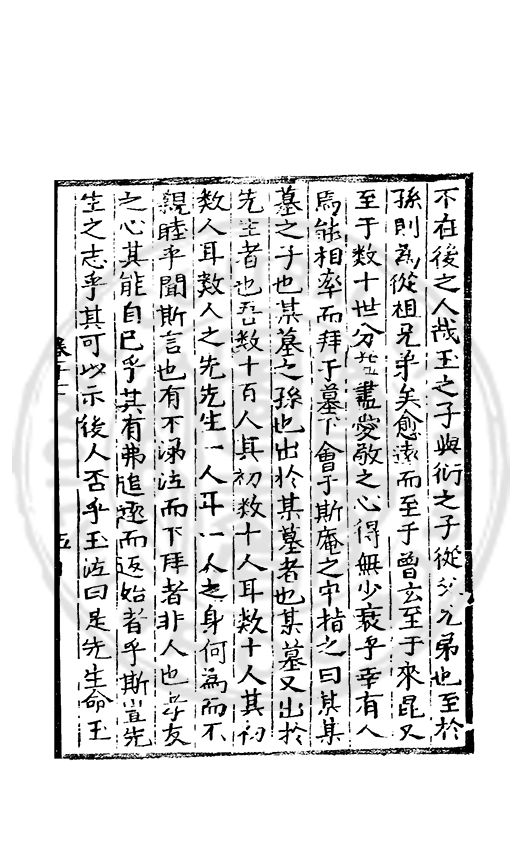 不在後之人哉玉之子與衍之子從父兄弟也至於
孫則為從祖兄弟矣愈遠而至于曾玄至于來昆又
至于数十世分益盡愛敬之心得無少衰乎幸有人
焉能相率而拜于墓下會于斯庵之中指之曰某某
墓之子也某墓之孫也出於某墓者也某墓又出於
先生者也吾数十百人其初数十人耳数十人其初
数人耳数人之先先生一人耳一人之身何為而不
親睦乎聞斯言也有不涕泣而下拜者非人也孝友
之心其能自已乎其有弗追逺而返始者乎斯豈先
生之志乎其可以示後人否乎玉泣曰是先生命玉